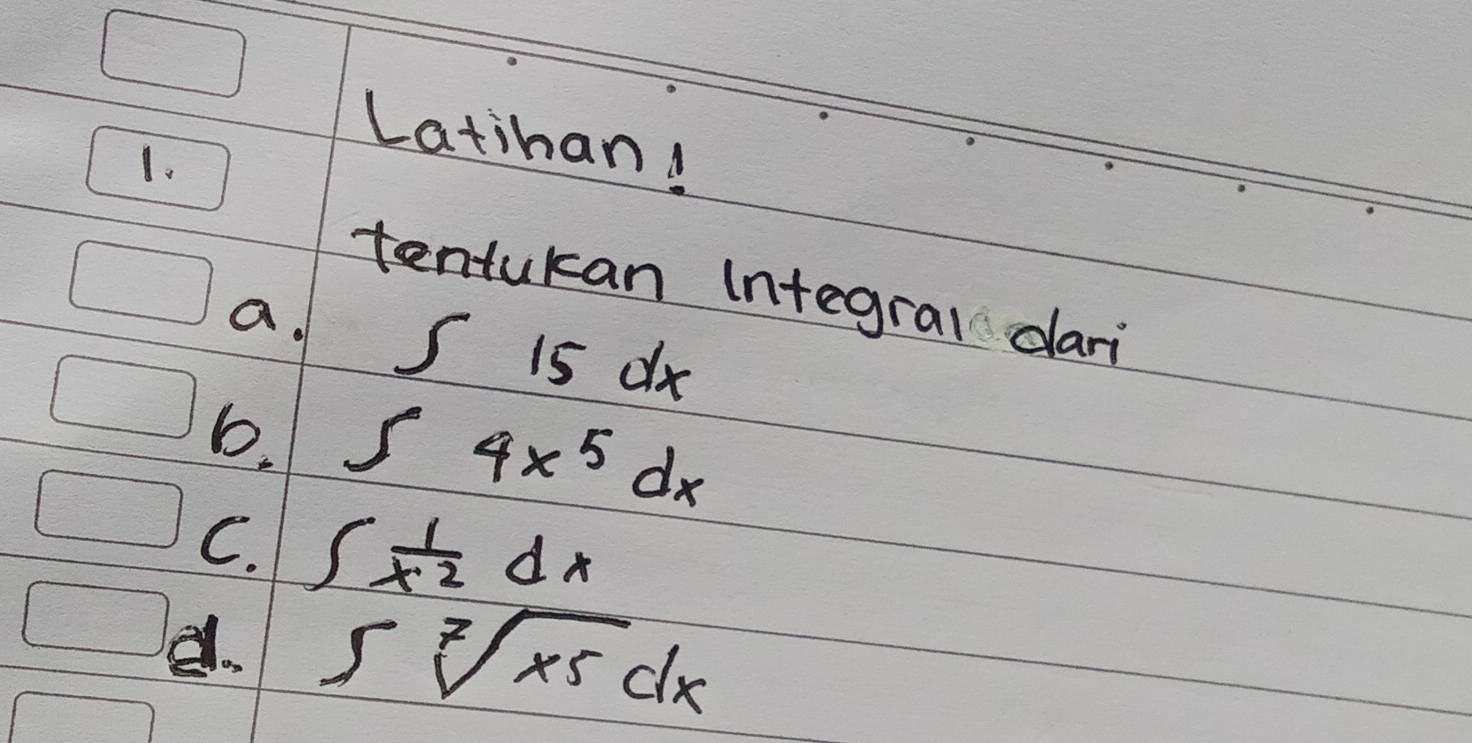 Latihan!
1. tentukan integral dari
a. ∫ 15 dx
b. ∫ 4x⁵ dx
c. ∫ 1/x² dx
d. ∫ ⁷√x5 dx